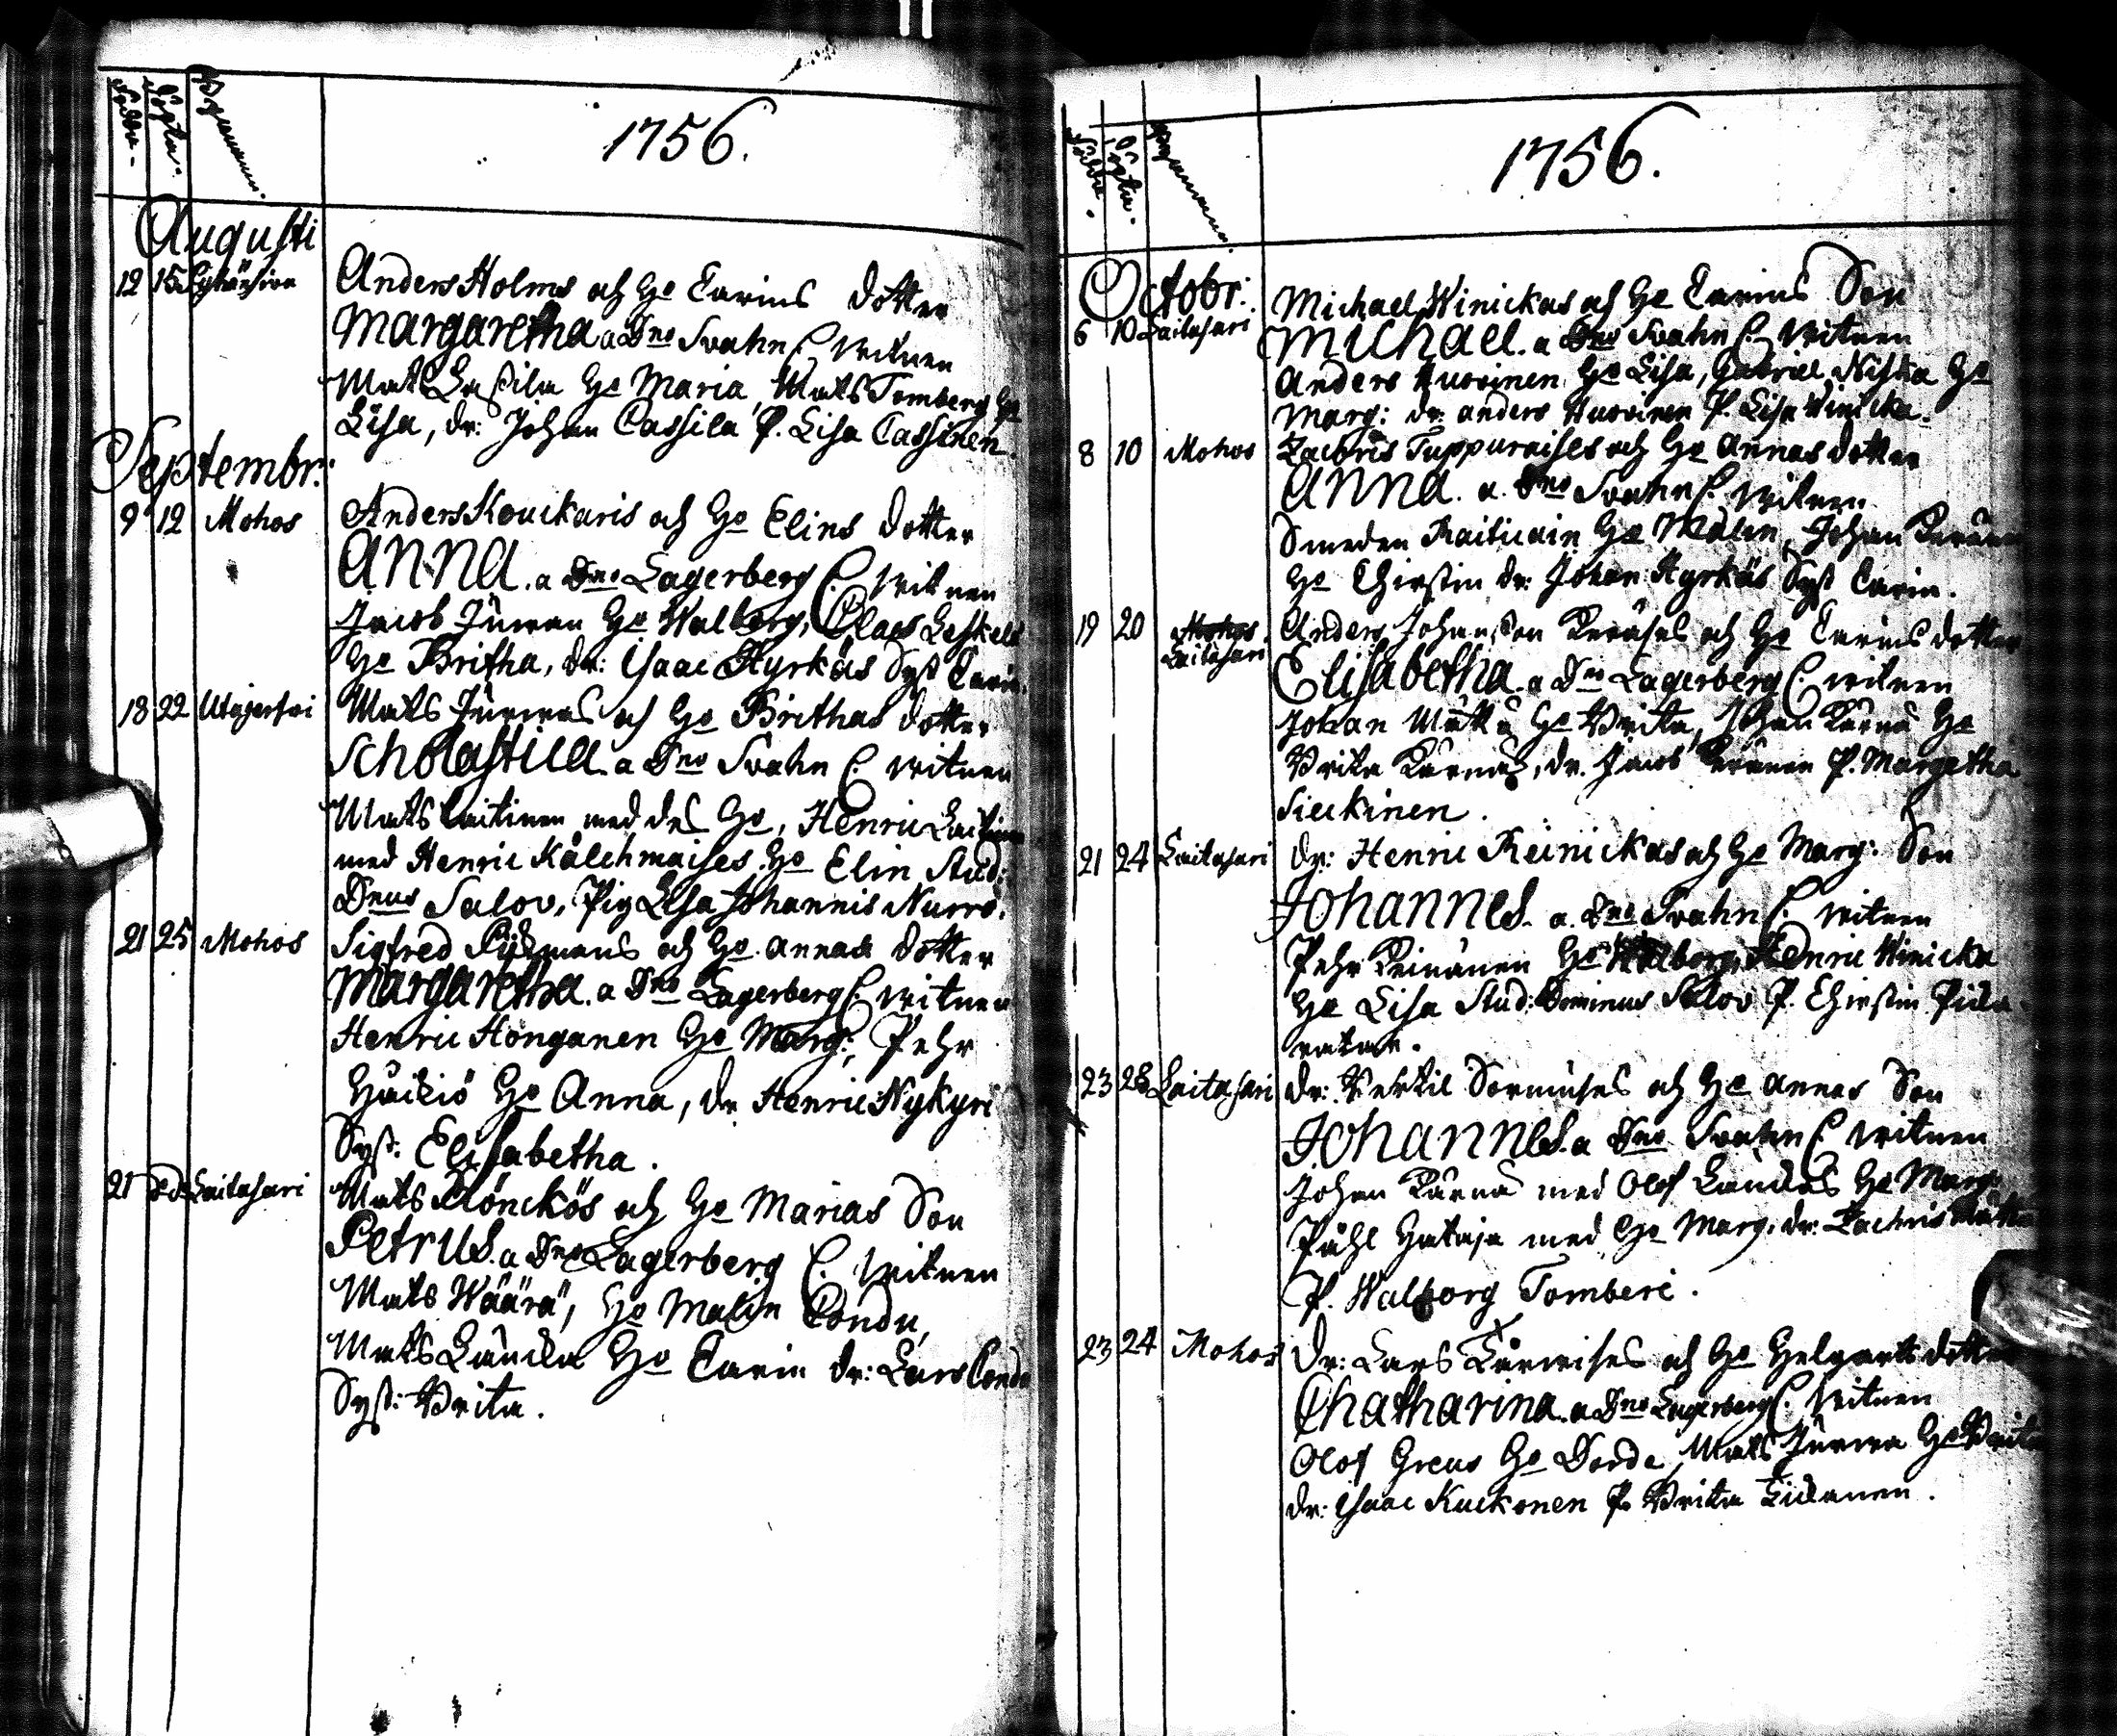 Födde. Döpta. Byarnam.
1756.
Augusti
12 15 Anders Holms och Ho Carins dotter
Margaretha a Dno Svahn C. witnen
Mats Cassila Ho Maria, Mats Tomberg Ho
Lisa, dr: Johan Cassila P. Lisa Cassinen.
Septembr:
9 12 Mohos Anders Kouckaris och Ho Elins dotter
Anna. a Dno Lagerberg C. witnen
Jacob Jurvan Ho Walborg, Claes Leskelä
Ho Britha, dr: Isaac Hyrkäs Syst Carin.
18 22 Utajerfvi Mats Jurvas och Ho Brithas dotter
Scholastica a Dno Svahn C. witnen
Mats Laitinen med des Ho, Henric Laitinen
med Henric Kälchmaises Ho Elin Stud:
Dnus Salov, Pig Lisa Johannis Nurro.
21 25 Mohos Sigfred och Ho Annas dotter
Margaretha a Dno Lagerberg C. witnen
Henric Honganen Ho Marg:, Pehr
Huikio Ho Anna, dr Henric Nykyri
Syst: Elisabetha.
21 dº Laitasari Mats Mönckös och Ho Marias Son
Petrus. a Dno Lagerberg C. witnen
Mats Wäärä, Ho Malin Condu,
Mats Laucka Ho Carin dr: Lars Condu
Syst: Brita.
Födde. Döpta. Byarnam.
1756.
Octobr:
6 10 Laitasari Michael Winickas och Ho Carins Son
Michael. a Dno Svahn C. witnen
Anders Huovinen Ho Lisa, Gabriel Niska Ho
Marg: dr anders Huovinen P. Lisa Winicka.
8 10 Mohos Zachris Tuppuraises och Ho Annas dotter
Anna. a. Dno Svahn C. witnen
Smeden Raiticain Ho Malin, Johan Keränen
Ho Chirstin dr: Johan Hyrkäs Syst Carin.
19 20 Mohos Laitasari Anders Johansson Keräses och Ho Carins dotter
Elisabetha. a Dno Lagerberg C. witnen
Johan Mattu Ho Brita, Johan Kärnä Ho
Brita Kärnä, dr. Jacob Keränen P. Margetha
Sieckinen.
21 24 Laitasari dr: Henric Reinickas och Ho Marg: Son
Johannes. a. Dno Svahn C. witnen
Pehr Reinänen Ho Walborg, Henric Winicka
Ho Lisa Stud: Dominus Salov P. Chirstin
23 28 Laitasari dr: Bertil Sormuses och Ho Annas Son
Johannes. a Dno Svahn C. witnen
Johan Kärnä med Olof Lauckas Ho Marg:
Påhl Hataja med Ho Marg: dr: Zachris
P. Walborg Tomberi.
23 24 Mohos dr: Lars Kärveises och Ho Helgarts dotter
Chatharina. a Dno Lagerberg C. witnen
Olof Greus Ho Dorde, Mats Jurva Ho Brita
dr: Isaac Kuckonen P. Brita